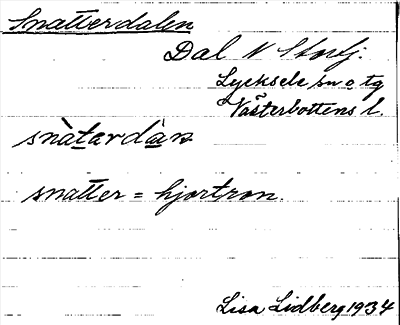 Snatterdalen
Dal N Storbj.
Lycksele sn o tg
Västerbottens l.
snàtardàn
snatter = hjortron.
Lisa Lidberg 1934